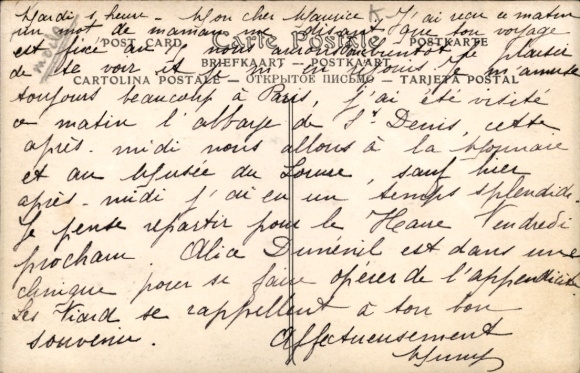 Mardi 1 heure - Mon cher Maurice - J'ai reçu ce matin
un mot de maman me disant que ton voyage
POST CARD Carte Postale POSTKARTE
est fixé au nous aurons bientôt le plaisir
BRIEFKAART - POSTKAART
de te voir et je m'amuse
CARTOLINA POSTALE - ОТКРЫТОЕ ПИСЬМО - TARJETA POSTAL
toujours beaucoup à Paris, j'ai été visité
ce matin l'abbaye de St Denis, cette
après-midi nous allons à la Monnaie
et au Musée du Louvre, sauf hier
après-midi j'ai eu un temps splendide.
Je pense repartir pour le Havre Vendredi
prochain. Alice Duménil est dans une
clinique pour se faire opérer de l'appendicite.
Les Viard se rappellent à ton bon
souvenir. Affectueusement